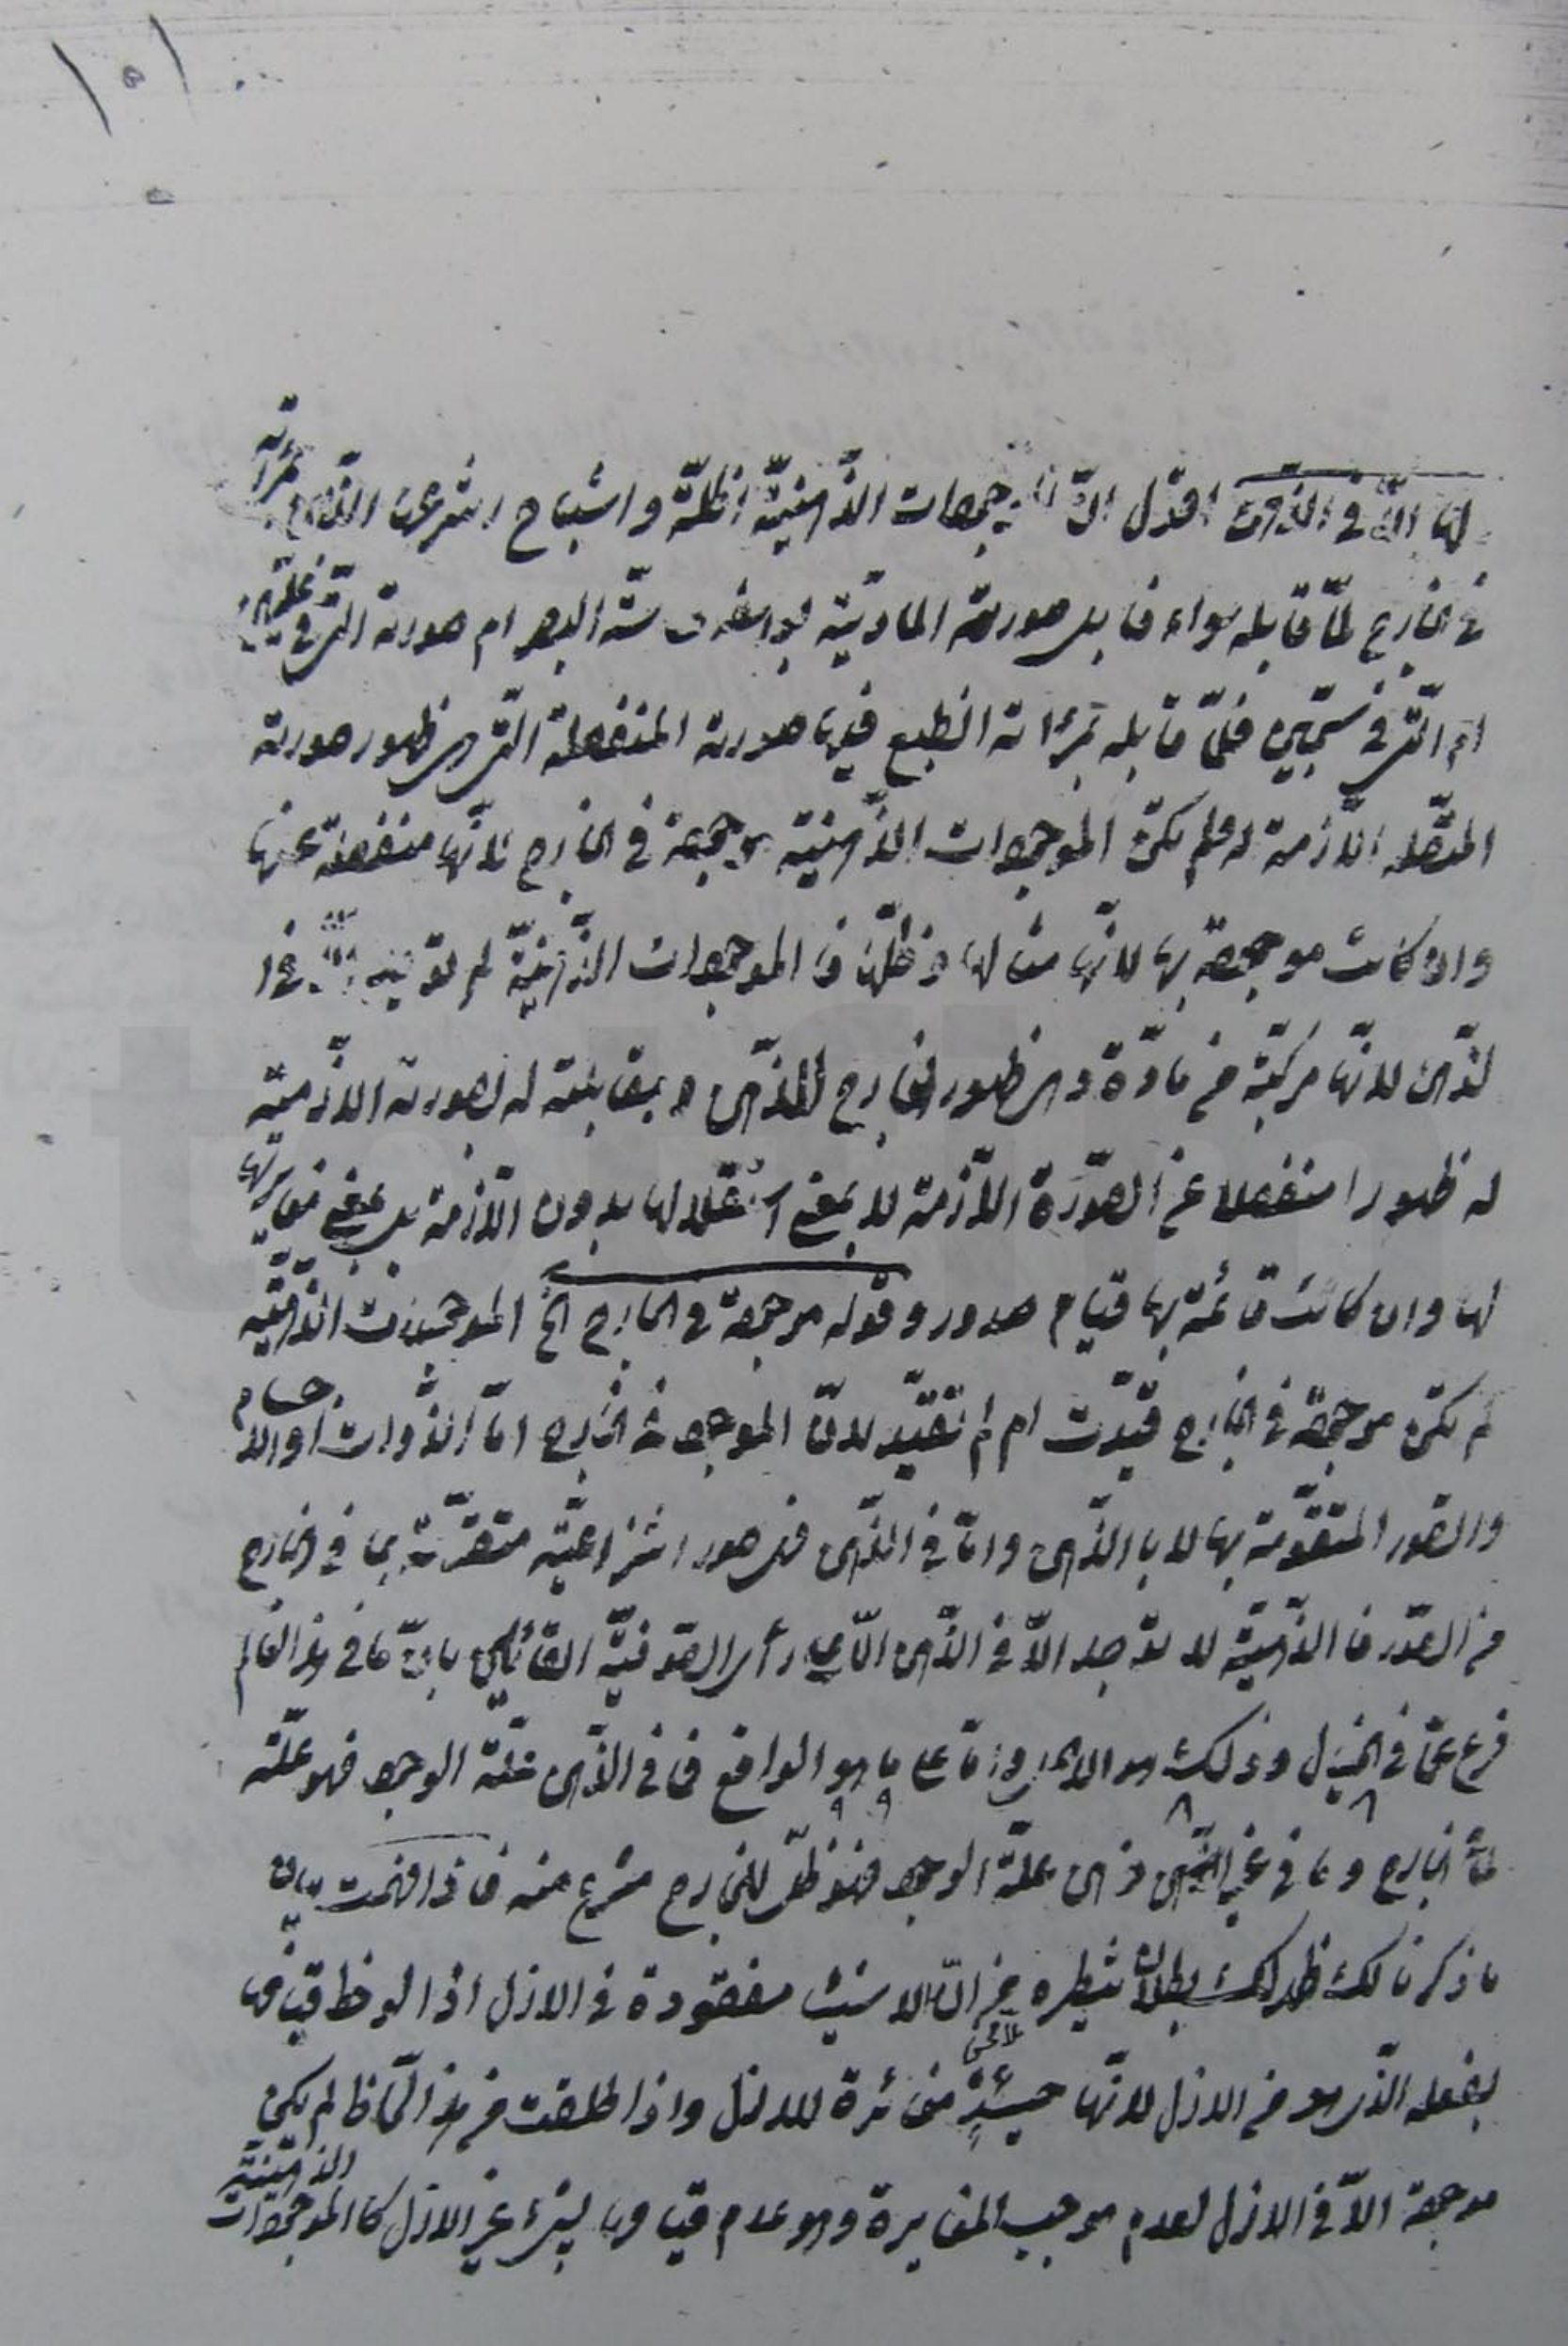 ١٥١
لها الّا في الذّهن اقول انّ الموجودات الذّهنيّة اظلّة واشباح انتزعها الذّهن بمرآته
في الخارج لمّا قابله سواء قابل صورته الماديّة بواسطة حاسّة البصر ام صورته الّتي في علّيّين
ام الّتي في سجّين فلمّا قابله بمرآته انطبع فيها صورته المنفصلة الّتي هي ظهور صورته
المتّصلة اللّازمة له فلم تكن الموجودات الذّهنيّة موجودة في الخارج لانّها منفصلة عنها
وان كانت موجودة بها لانّها مثالها وظلّها فالموجودات الذّهنيّة لم توجد الّا في
الذّهن لانّها مركّبة من مادّة وهي ظهور الخارج للذّهن ومقابلته له بصورته اللّازمة
له ظهورا منفصلا عن الصّورة اللّازمة لا بمعنى استقلالها بدون اللّازمة بل بمعنى مغايرتها
لها وان كانت قائمة بها قيام صدور وقوله موجودة في الخارج الخ الموجودات الذّهنيّة
لم تكن موجودة في الخارج قيّدت ام لم تقيّد لانّ الموجود في الخارج امّا الذّوات او الاجسام
والصّور المتقوّمة بها لا بالذّهن وامّا في الذّهن فهي صور انتزاعيّة متقوّمة بما في الخارج
من الصّور فالذّهنيّة لا توجد الّا في الذّهن الّا على رأي الصّوفيّة القائلين بانّ ما في هذا العالم
فرع عمّا في الخيال وذلك هو الاصل وامّا على ما هو الواقع فما في الذّهن علّة الوجود فهو علّة
لما في الخارج وما في غير الذّهن ذهن علّة الوجود فهو ظلّ للخارج منتزع منه فاذا فهمت بيان
ما ذكرنا لك ظهر لك بطلان تنظيره من انّ الاشياء مفقودة في الازل اذا لوحظ قيامها
بفعله الّذي هو من الازل لانّها حينئذٍ ملاحظ مغائرة للازل واذا اطلقت من هذا اللّحاظ لم يكن
موجودة الّا في الازل لعدم موجب المغايرة وهو عدم قيامها بشيء غير الازل كالموجودات الذّهنيّة